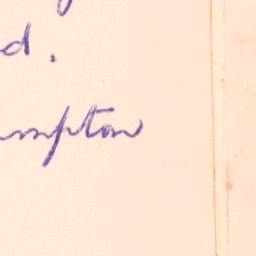 d.
mpton